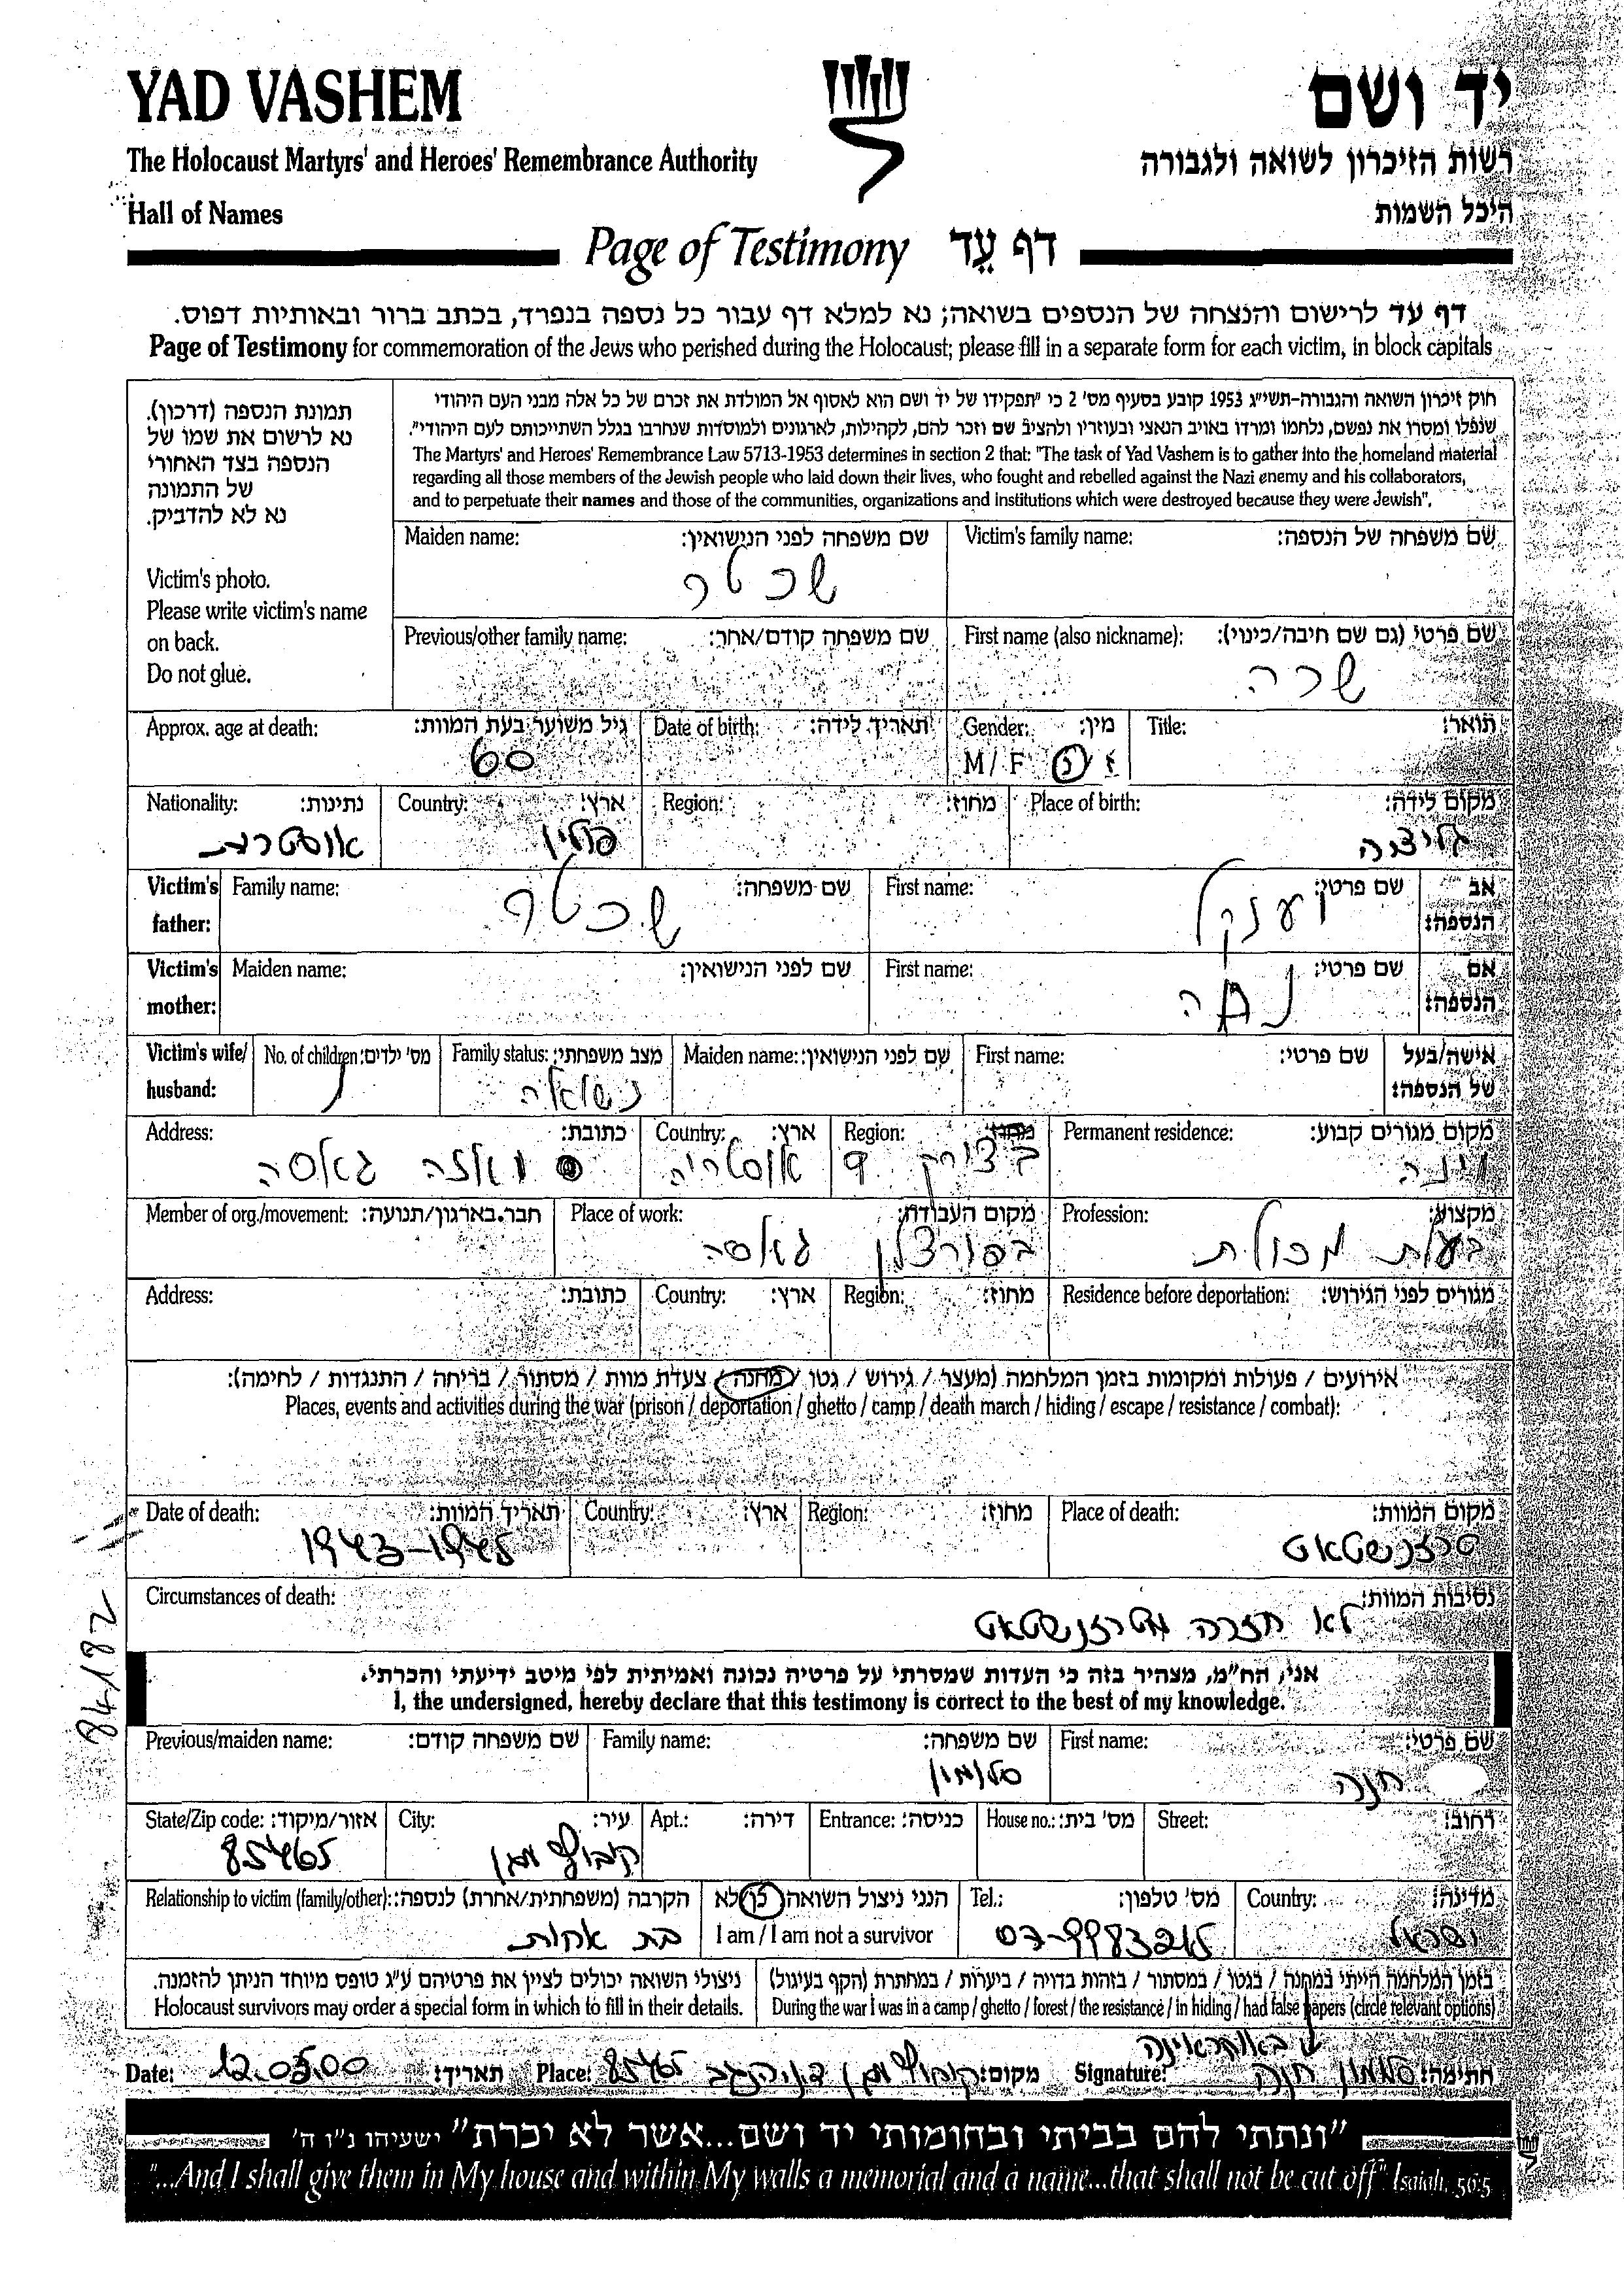 YAD VASHEM
יד ושם
The Holocaust Martyrs' and Heroes' Remembrance Authority
רשות הזיכרון לשואה ולגבורה
Hall of Names
היכל השמות
Page of Testimony דף עֵד
דף עד לרישום והנצחה של הנספים בשואה; נא למלא דף עבור כל נספה בנפרד, בכתב ברור ובאותיות דפוס.
Page of Testimony for commemoration of the Jews who perished during the Holocaust; please fill in a separate form for each victim, in block capitals
תמונת הנספה (דרכון).
נא לרשום את שמו של
הנספה בצד האחורי
של התמונה
נא לא להדביק.
Victim's photo.
Please write victim's name
on back.
Do not glue.
חוק זיכרון השואה והגבורה-תשי"ג 1953 קובע בסעיף מס' 2 כי "תפקידו של יד ושם הוא לאסוף אל המולדת את זכרם של כל אלה מבני העם היהודי
שנפלו ומסרו את נפשם, נלחמו ומרדו באויב הנאצי ובעוזריו ולהציב שם וזכר להם, לקהילות, לארגונים ולמוסדות שנחרבו בגלל השתייכותם לעם היהודי".
The Martyrs' and Heroes' Remembrance Law 5713-1953 determines in section 2 that: "The task of Yad Vashem is to gather into the homeland material
regarding all those members of the Jewish people who laid down their lives, who fought and rebelled against the Nazi enemy and his collaborators,
and to perpetuate their names and those of the communities, organizations and institutions which were destroyed because they were Jewish".
Victim's family name: שם משפחה של הנספה:
Maiden name: שם משפחה לפני הנישואין:
שכטר
First name (also nickname): שם פרטי (גם שם חיבה/כינוי):
שרה
Previous/other family name: שם משפחה קודם/אחר:
Title: תואר:
Gender: מין:
M / F ז / נ
Date of birth: תאריך לידה:
Approx. age at death: גיל משוער בעת המוות:
60
Place of birth: מקום לידה:
גליציה
Region: מחוז:
Country: ארץ:
פולין
Nationality: נתינות:
אוסטרית
Victim's father: אב הנספה:
First name: שם פרטי:
יענקל
Family name: שם משפחה:
שכטר
Victim's mother: אם הנספה:
First name: שם פרטי:
Maiden name: שם לפני הנישואין:
Victim's wife/husband: אישה/בעל של הנספה:
First name: שם פרטי:
Maiden name: שם לפני הנישואין:
Family status: מצב משפחתי:
נשואה
No. of children: מס' ילדים:
Permanent residence: מקום מגורים קבוע:
וינה
Region: מחוז:
בצירק 9
Country: ארץ:
אוסטריה
Address: כתובת:
גאסה
Profession: מקצוע:
בעלת מכולת
Place of work: מקום העבודה:
בפורצלן גאסה
Member of org./movement: חבר בארגון/תנועה:
Residence before deportation: מגורים לפני הגירוש:
Region: מחוז:
Country: ארץ:
Address: כתובת:
אירועים / פעולות ומקומות בזמן המלחמה (מעצר / גירוש / גטו / מחנה / צעדת מוות / מסתור / בריחה / התנגדות / לחימה):
Places, events and activities during the war (prison / deportation / ghetto / camp / death march / hiding / escape / resistance / combat):
Place of death: מקום המוות:
טרזנשטאט
Region: מחוז:
Country: ארץ:
Date of death: תאריך המוות:
1943-1945
Circumstances of death: נסיבות המוות:
לא חזרה מטרזנשטאט
84182
אני, הח"מ, מצהיר בזה כי העדות שמסרתי על פרטיה נכונה ואמיתית לפי מיטב ידיעתי והכרתי.
I, the undersigned, hereby declare that this testimony is correct to the best of my knowledge.
First name: שם פרטי:
חנה
Family name: שם משפחה:
סלומון
Previous/maiden name: שם משפחה קודם:
Street: רחוב:
House no.: מס' בית:
Entrance: כניסה:
Apt.: דירה:
City: עיר:
קיבוץ מגן
State/Zip code: אזור/מיקוד:
85465
Country: מדינה:
ישראל
Tel.: מס' טלפון:
07-9983215
הנני ניצול השואה כן/לא
I am / I am not a survivor
Relationship to victim (family/other): הקרבה (משפחתית/אחרת) לנספה:
בת אחות
בזמן המלחמה הייתי במחנה / בגטו / במסתור / בזהות בדויה / ביערות / במחתרת (הקף בעיגול)
During the war I was in a camp / ghetto / forest / the resistance / in hiding / had false papers (circle relevant options)
ניצולי השואה יכולים לציין את פרטיהם ע"ג טופס מיוחד הניתן להזמנה.
Holocaust survivors may order a special form in which to fill in their details.
באוקראינה
Signature: חתימה: סלומון חנה
Place: מקום: קיבוץ מגן ד.נ. הנגב 85465
Date: תאריך: 12.05.00
"ונתתי להם בביתי ובחומותי יד ושם...אשר לא יכרת" ישעיהו נ"ו ה'
"...And I shall give them in My house and within My walls a memorial and a name...that shall not be cut off" Isaiah, 56:5